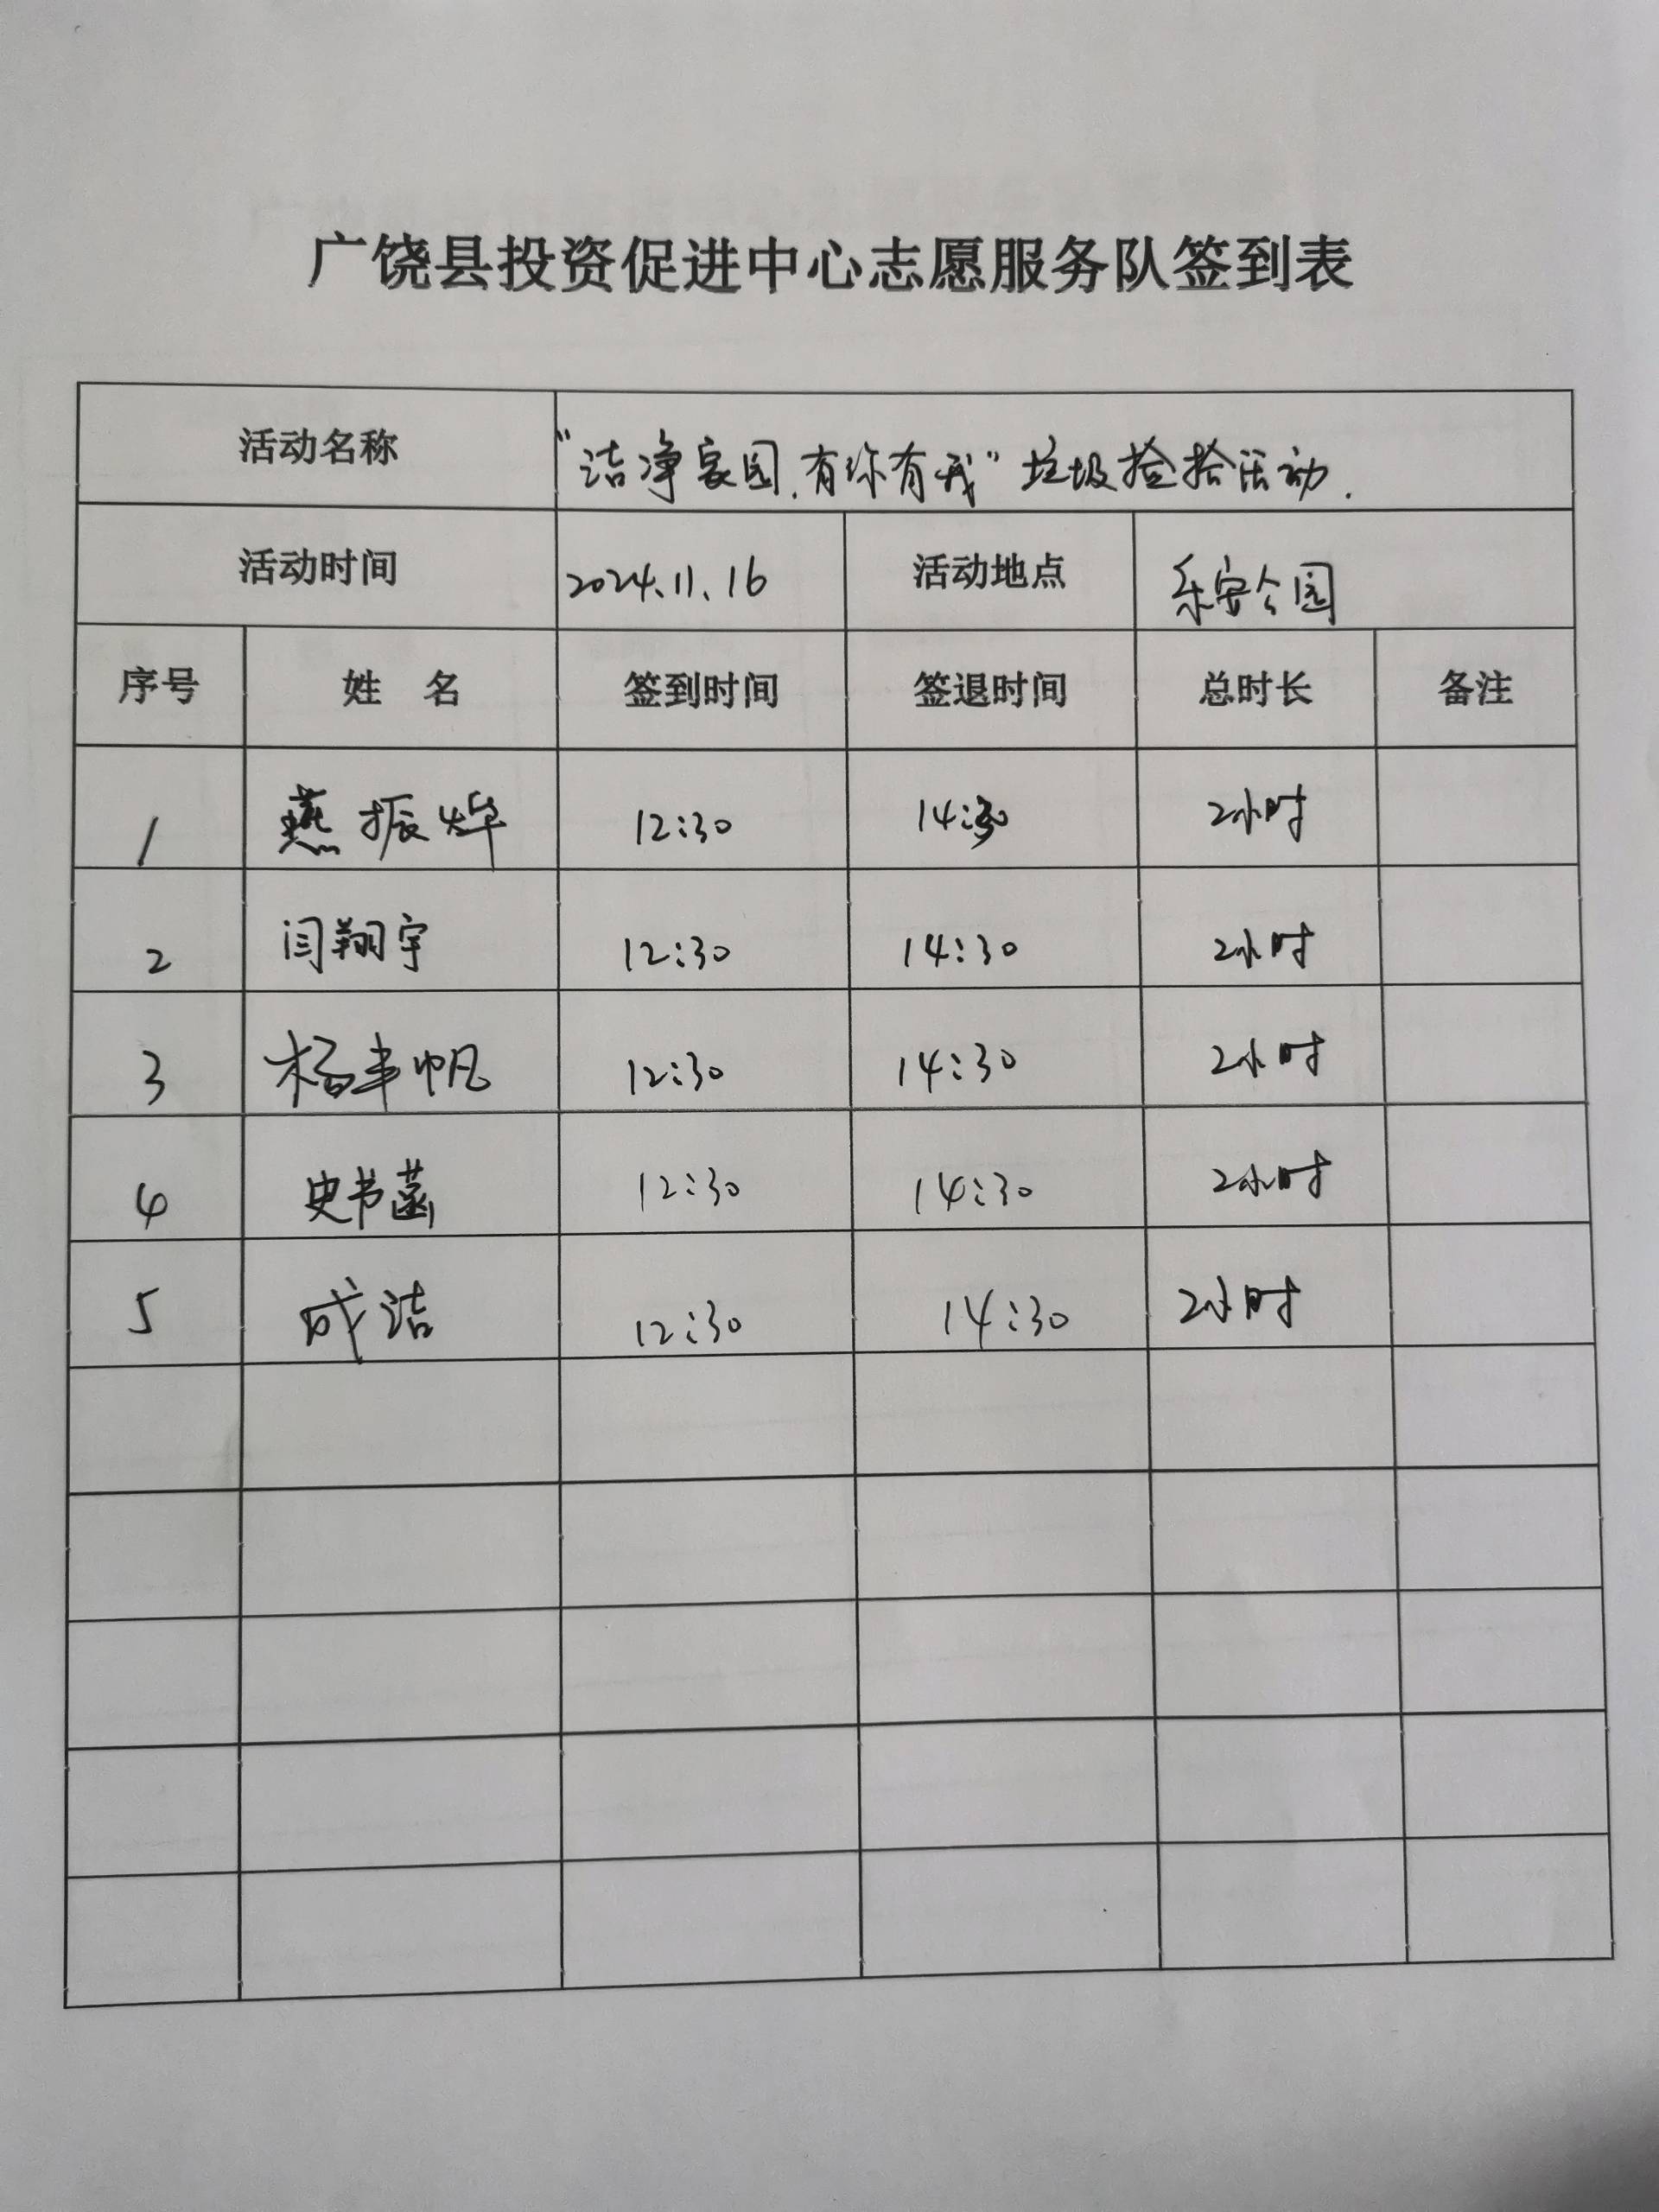 广饶县投资促进中心志愿服务队签到表
活动名称 "洁净家园.有你有我"垃圾捡拾活动.
活动时间 2024.11.16 活动地点 乐安公园
序号 姓 名 签到时间 签退时间 总时长 备注
1 燕振烨 12:30 14:30 2小时
2 闫翔宇 12:30 14:30 2小时
3 杨丰帆 12:30 14:30 2小时
4 史书菡 12:30 14:30 2小时
5 成洁 12:30 14:30 2小时